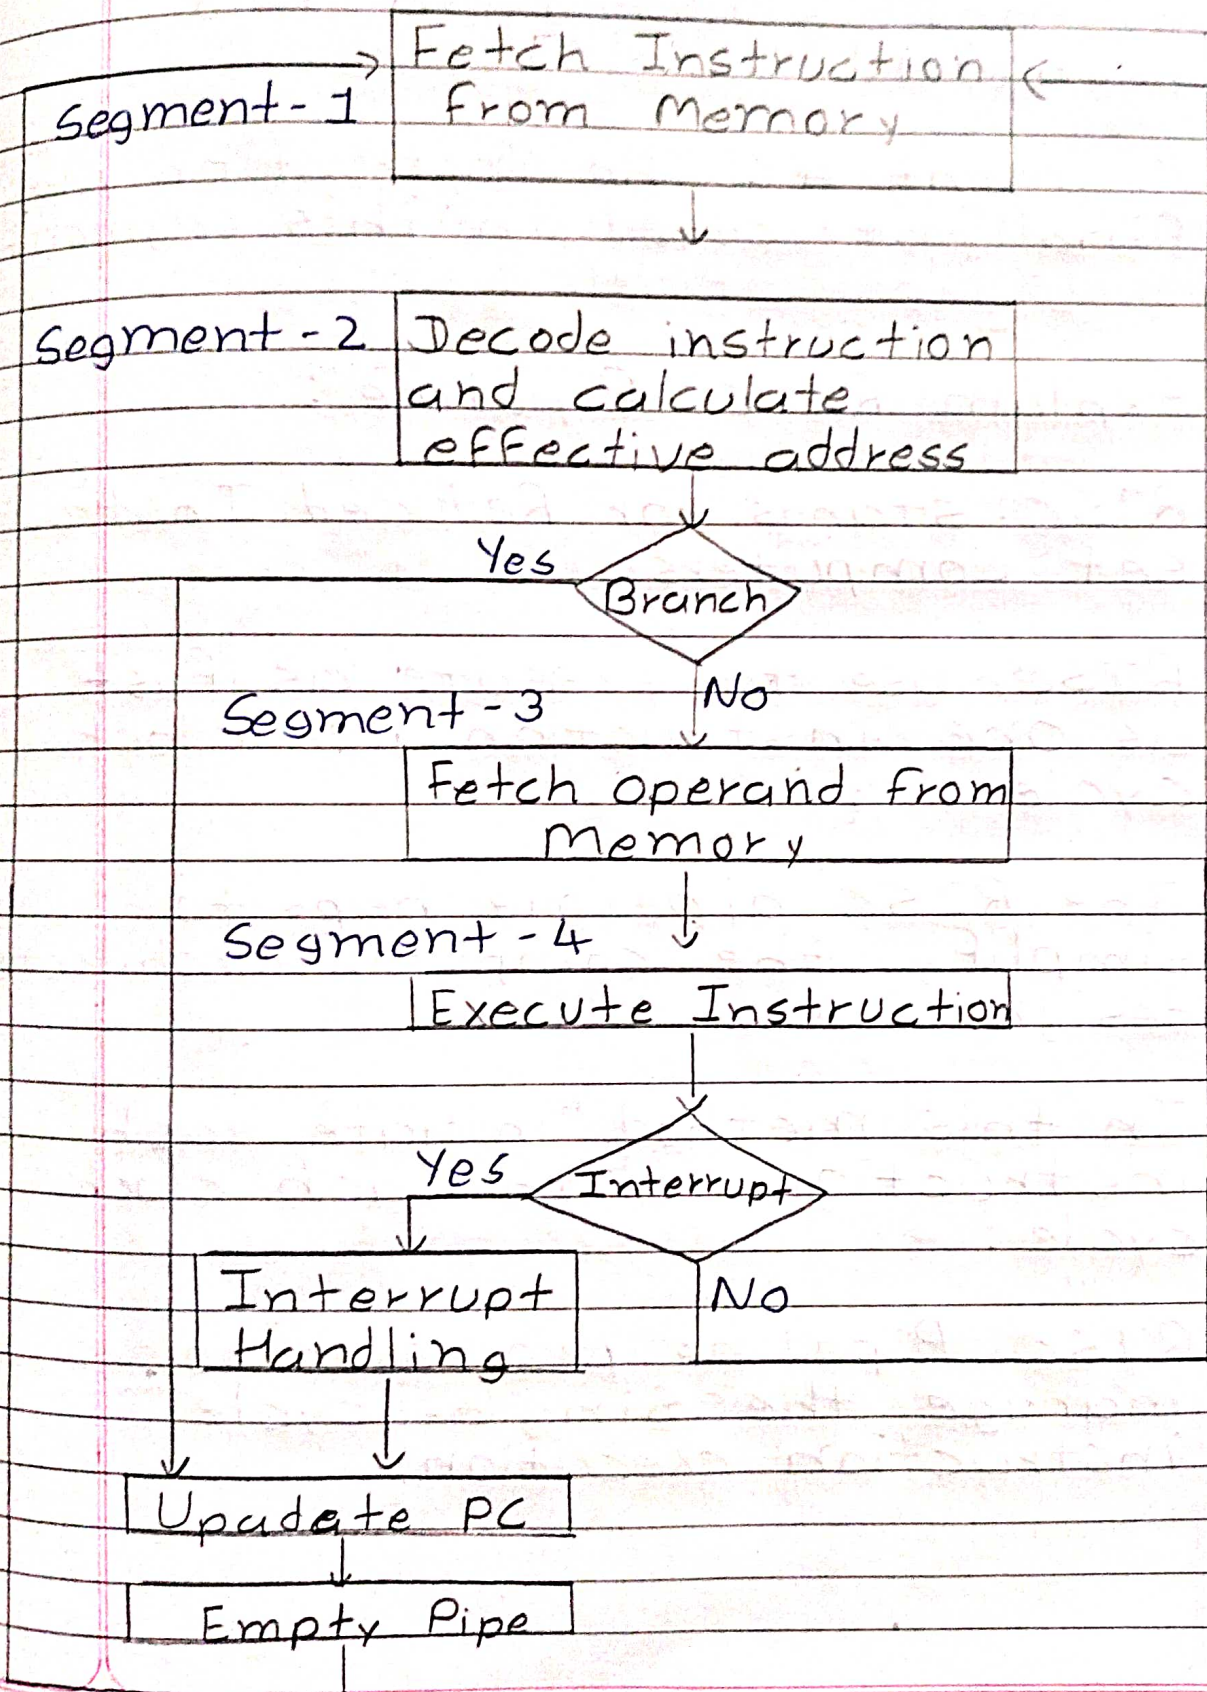 Fetch Instruction
Segment-1 from Memory
Segment-2 Decode instruction
and calculate
effective address
Yes
Branch
No
Segment-3
Fetch operand from
Memory
Segment-4
Execute Instruction
Yes
Interrupt
Interrupt
No
Handling
Upadate PC
Empty Pipe